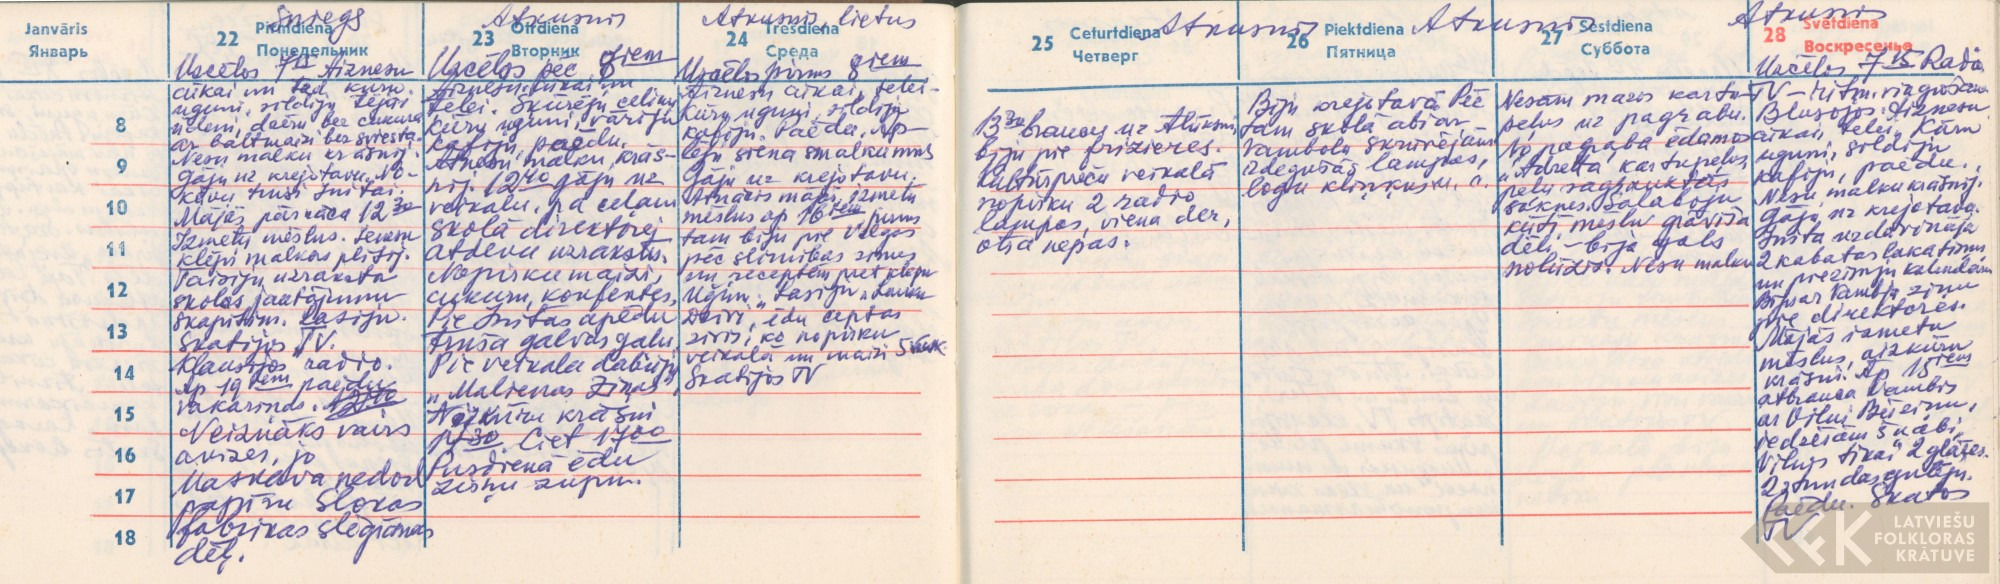 Janvāris
Январь
Sniegs
22 Pirmdiena
Понедельник
Uzcēlos 7 15 Aiznesu
cūkai un tad kuru
uguni, sildīju tējai
ūdeni, dzēru bez cukura
ar baltmaizi bez sviesta.
Nesu malku krāsnij.
Gāju uz krejotavu. No-
kāvu trusi Initai.
Mājās pārnāca 12 30
Izmetu mēslus. Ievem
klēju malkas plītij.
Taisīju uzrakstu
skolas jautājumu
skapītim. Lasīju.
Skatījos TV.
Klausījos radio.
Ap 19 tiem paēdu
vakariņas.
Neiznāks vairs
avīzes, jo
Maskava nedod
papīru Slokas
fabrikas slēgšanas
dēļ.
Atkusnis
23 Otrdiena
Вторник
Uzcēlos pēc 8 ņiem
Aiznesu cūkai un
telei. Skurēju celiņu
Kūru uguni, vārīju
kafiju, paēdu.
Atnesu malku krās-
nij. 12 40 gāju uz
veikalu, pa ceļam
skolā direktorei
atdevu uzrakstu.
Nopirku maizi,
cukuru, konfektes,
Pie Initas apēdu
truša galvas gaļu
Pie veikala dabūju
„Malienas Ziņas"
Aizkūru krāsni
Ciet 17 00
Pusdienā ēdu
zivju zupu.
Atkusnis, lietus
24 Trešdiena
Среда
Uzcēlos pirms 8 ņiem
Aiznesu cūkai, telei-
Kūru uguni, sildīju
kafiju. Paēdu. Ap-
lēju siena smalkumus
Gāju uz krejotavu.
Atnācis mājās izmetu
mēslus ap 16 tiem, pirms
tam biju pie Valgas
pēc slimības zīmes
un receptēm pret klepu
Lasīju „Lauku
Dzīvi", ēdu ceptas
zivis, ko nopirku
veikalā un maizi 5 kuk.
Skatījos TV
25 Ceturtdiena
Четверг
Atkusnis
8 30 braucu uz Alūksni
biju pie frizieres.
Kultūrpreču veikalā
nopirku 2 radio
lampas, viena der,
otra nepas.
26 Piektdiena
Пятница
Atkusnis
Biju krejotavā Pēc
tam skolā abi ar
Vambolu skrūvējām
izdegušās lampas,
logu
27 Sestdiena
Суббота
Nesām mazos kartu-
peļus uz pagrabu.
No pagraba ēdamos
„Adretta" kartupeļus,
peļu sagrauztos
sāknes. Salaboju
kūtī mēslu grāvīša
dēli - bija gals
nolūzis. Nesu malku
Atkusnis
28 Svētdiena
Воскресенье
Uzcēlos 7 15 Radio
TV - ritm. vingrošana
Blusojos. Aiznesu
cūkai, telei. Kūru
uguni, sildīju
kafiju, paēdu.
Nesu malku krāsnij.
Gāju uz krejotavu.
Inita uzdāvināja
2 kabatas lakatiņus
un piezīmju kalendāru
Biju ar Vambja ziņu
pie direktores.
Mājās izmetu
mēslus, aizkūru
krāsni. Ap 15 tiem
atbrauca Vambis
ar Vilni Bēziņu,
iedzērām šnabi,
Vilnis tikai 2 glāzes.
2 stundas gulēju.
Paēdu. Skatos
TV
8
9
10
11
12
13
14
15
16
17
18
LFK
LATVIEŠU
FOLKLORAS
KRĀTUVE